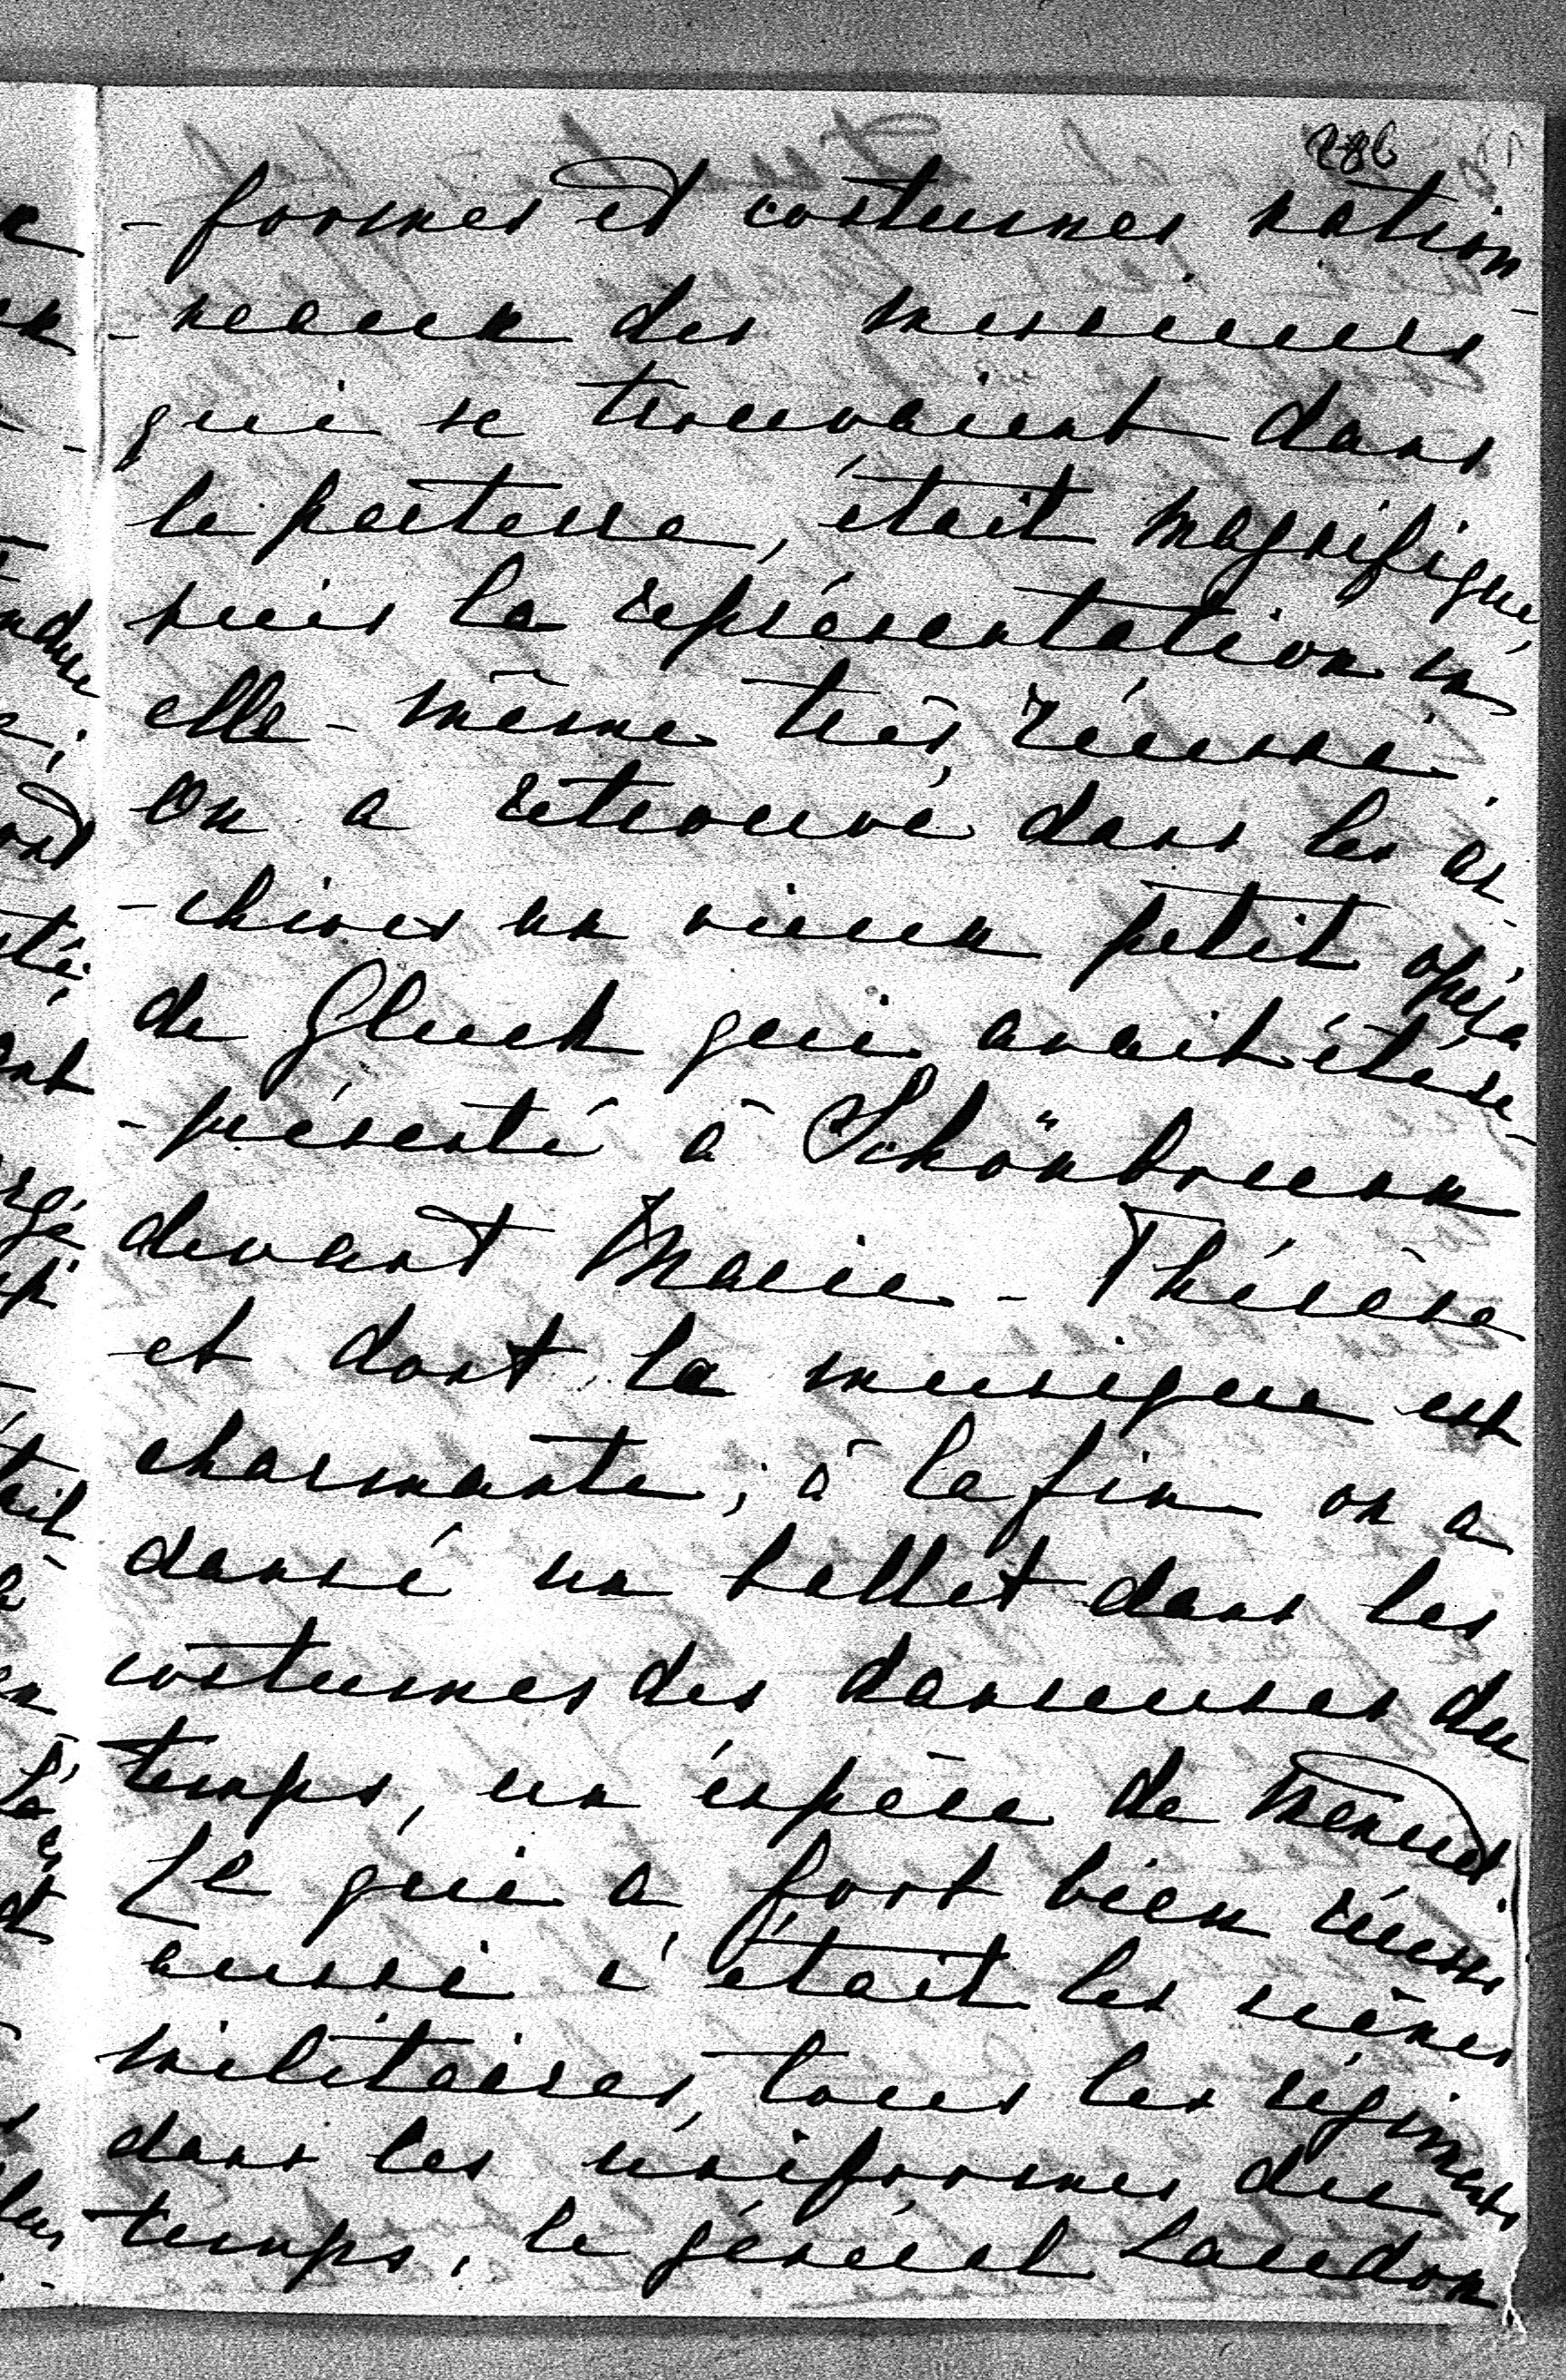 286
-formes et costumes nation-
-neaux des messieurs
qui se trouvaient dans
le parterre, était magnifique,
puis la représentation en
elle-même très réussie.
on a retrouvé dans les ar-
-chives un vieux petit opéra
de Gluck qui avait été re-
-présenté à Schönbrunn
devant Marie-Thérèse
et dont la musique est
charmante; à la fin on a
dansé un ballet dans les
costumes des danseuses du
temps, un espèce de menuet.
Ce qui a fort bien réussi
aussi c'était les scènes
militaires, tous les régiments
dans les uniformes du
temps, le général Laudon